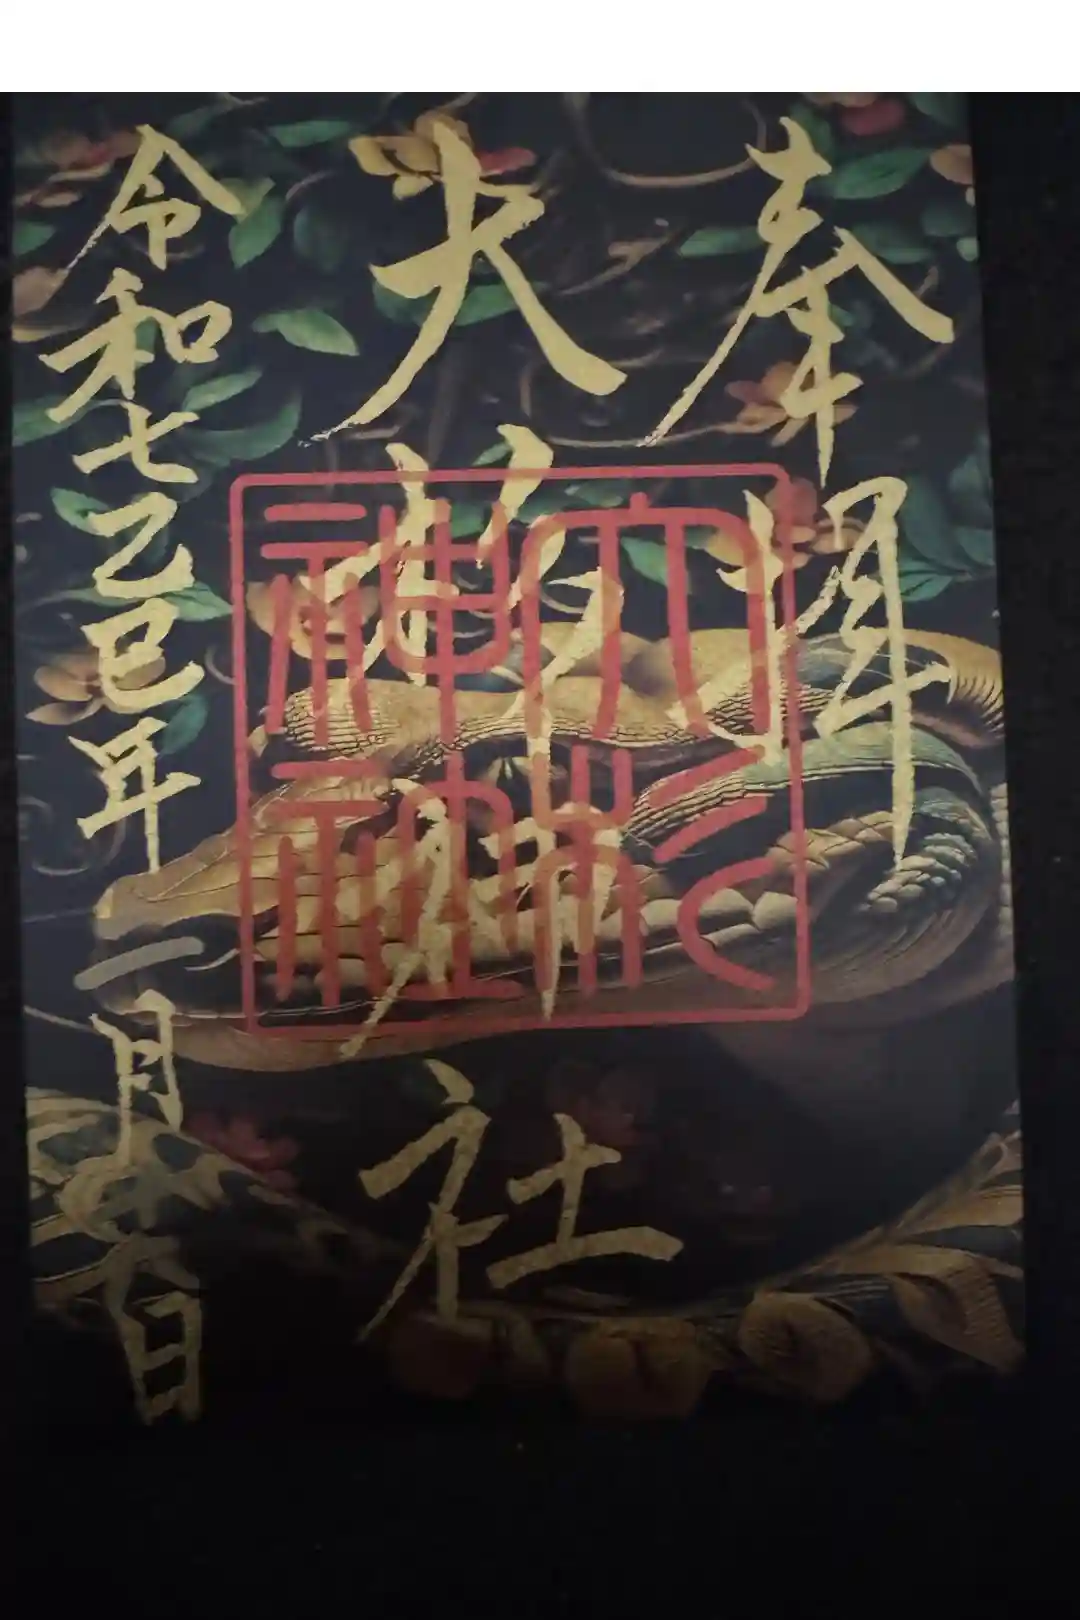 奉拝
大杉神社
令和七乙巳年二月 日
大杉
神社